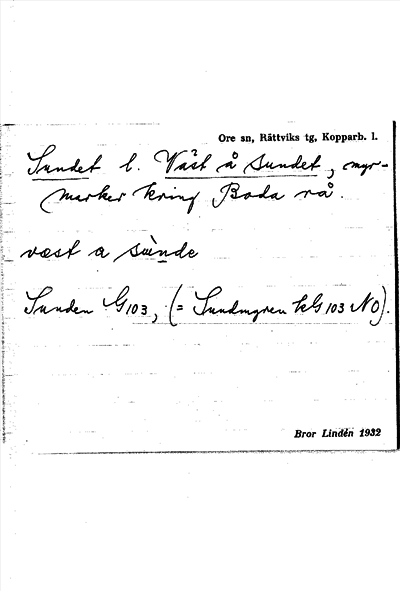 Ore sn, Rättviks tg, Kopparb. l.
Sundet l. Väst å Sundet, myr-
marker kring Boda rå.
væst a sùnde
Sunden G103, (= Sundmyren kG 103 NO).
Bror Lindén 1932